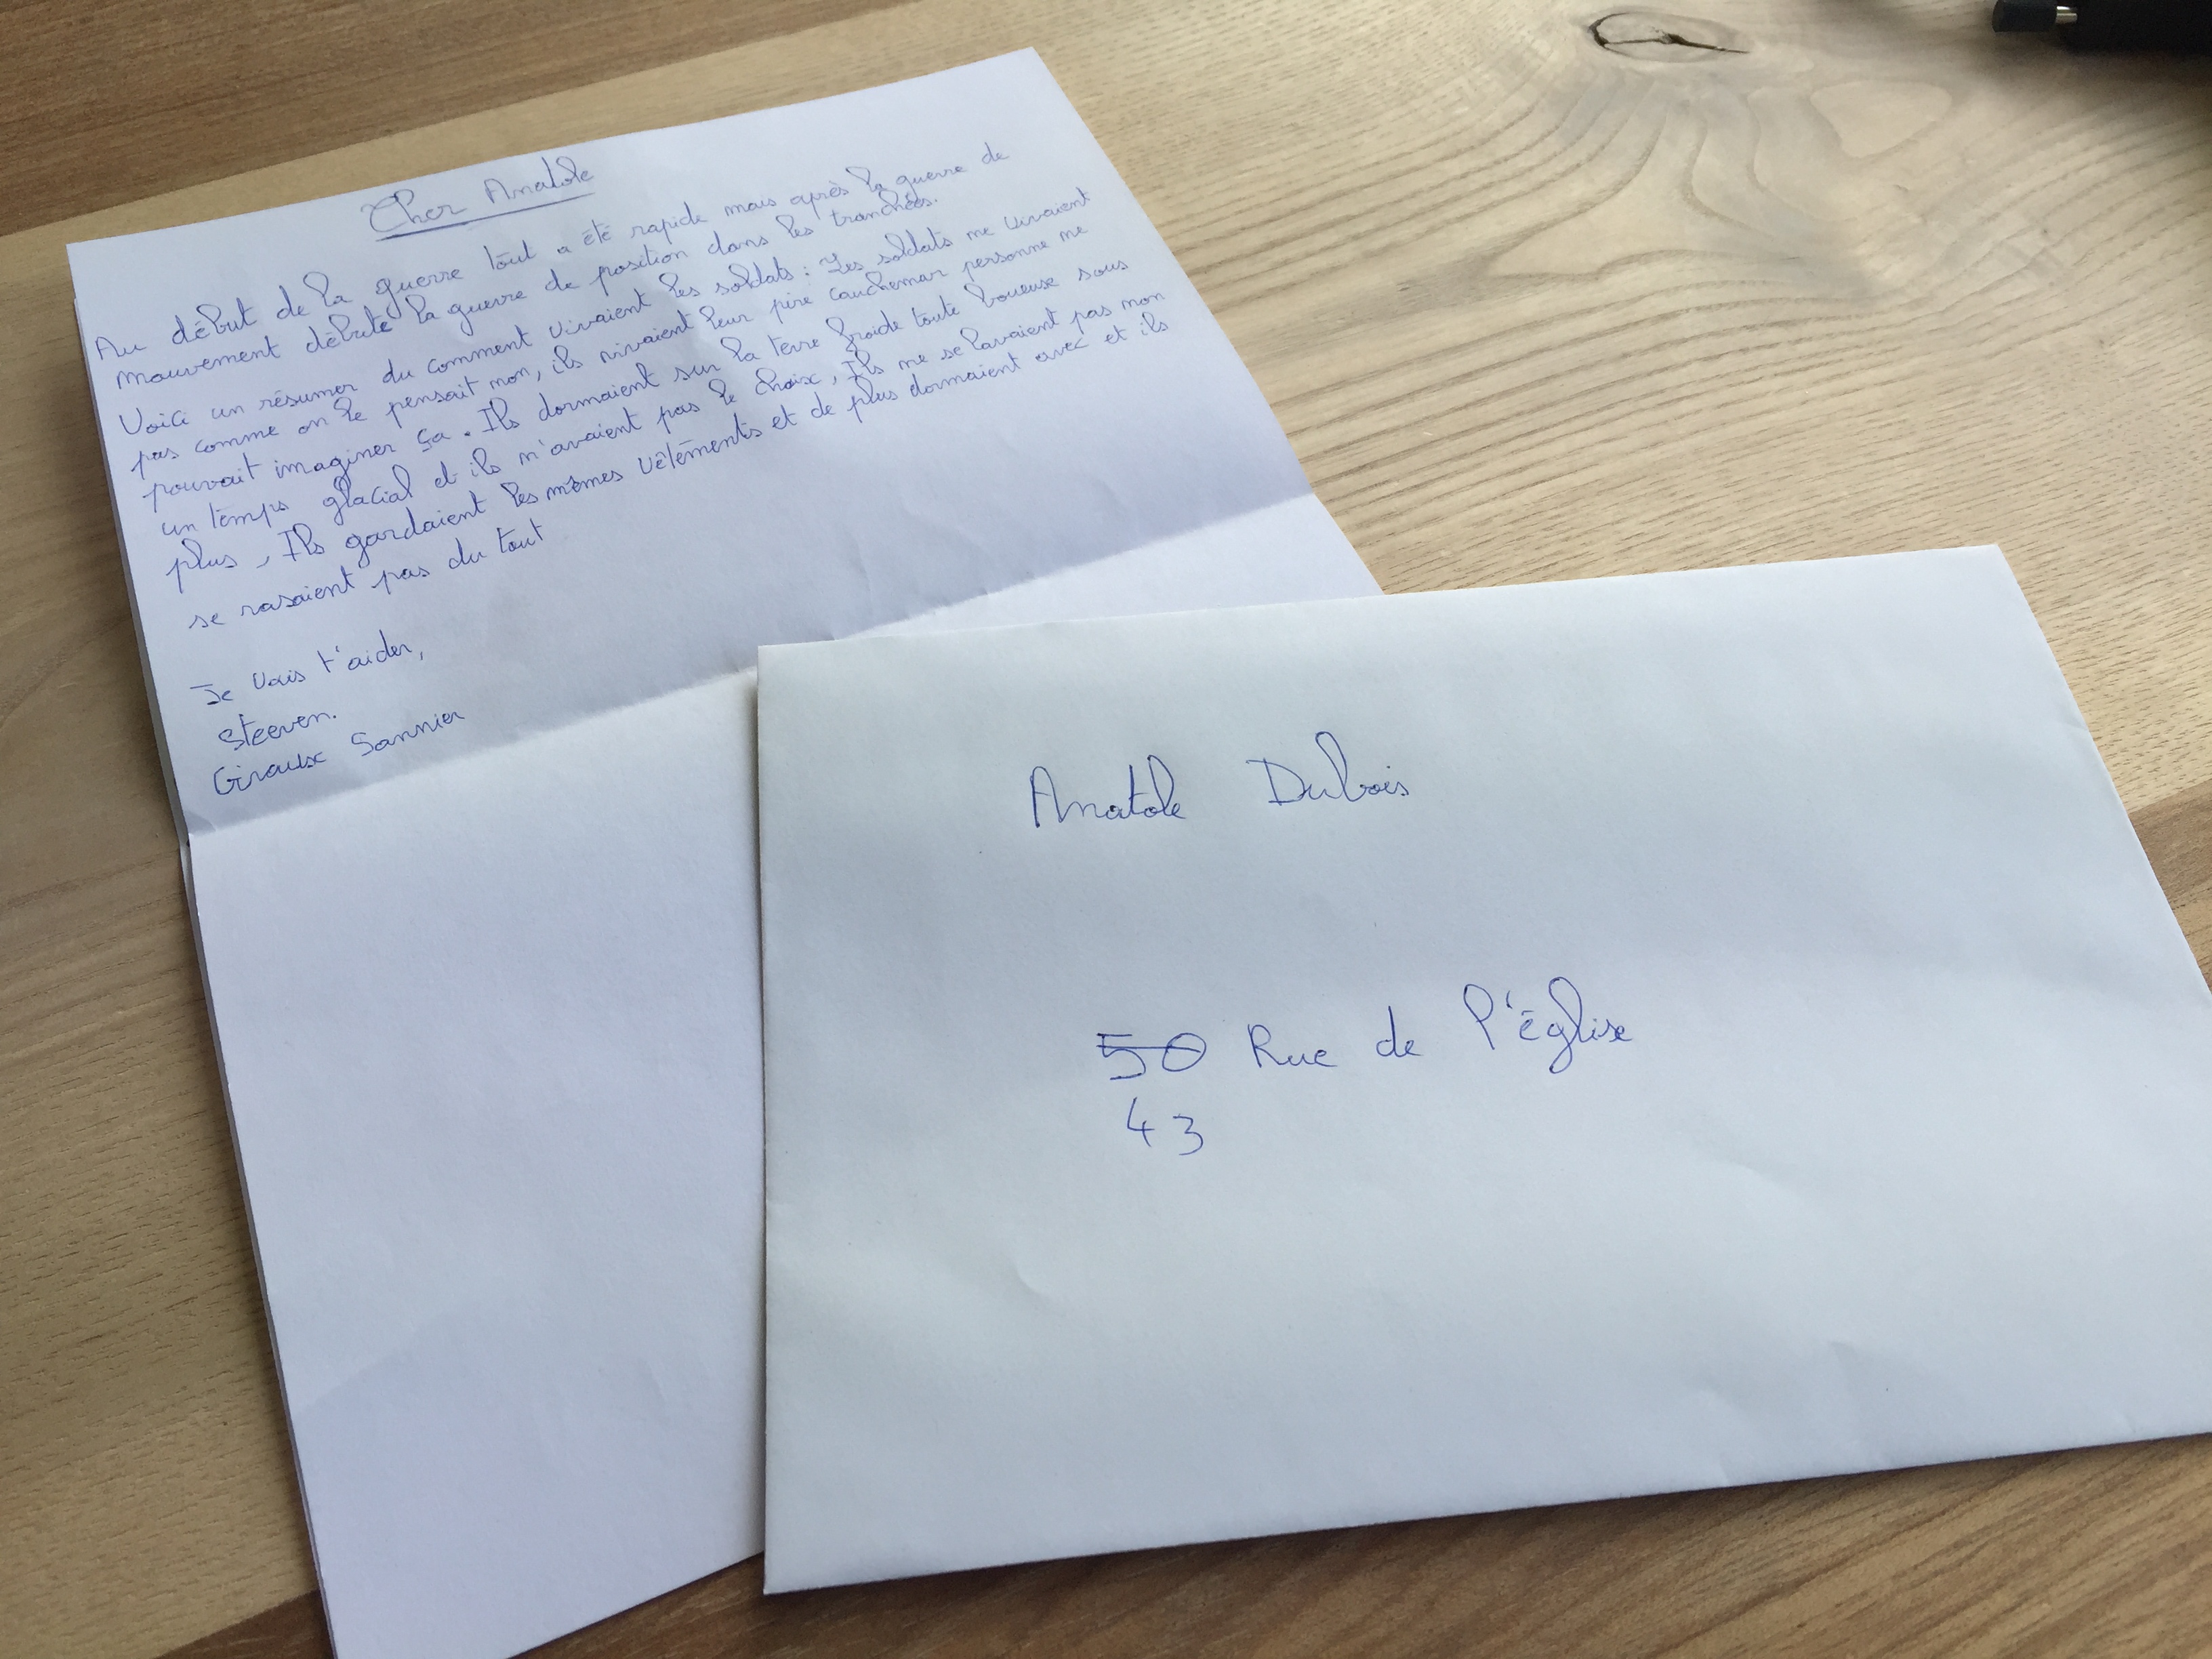 Cher Anatole
Au début de la guerre tout a été rapide mais après la guerre de
mouvement débute la guerre de position dans les tranchées.
Voici un résumer du comment vivaient les soldats : Les soldats ne vivaient
pas comme on le pensait non, ils vivaient leur pire cauchemar personne ne
pouvait imaginer ça. Ils dormaient sur la terre froide toute boueuse sous
un temps glacial et ils n'avaient pas le choix, Ils ne se lavaient pas non
plus, Ils gardaient les mêmes vêtements et de plus dormaient avec et ils
se rasaient pas du tout
Je vais t'aider,
Steeven.
Giraux Sannier
Anatole Dubois
50 Rue de l'église
43